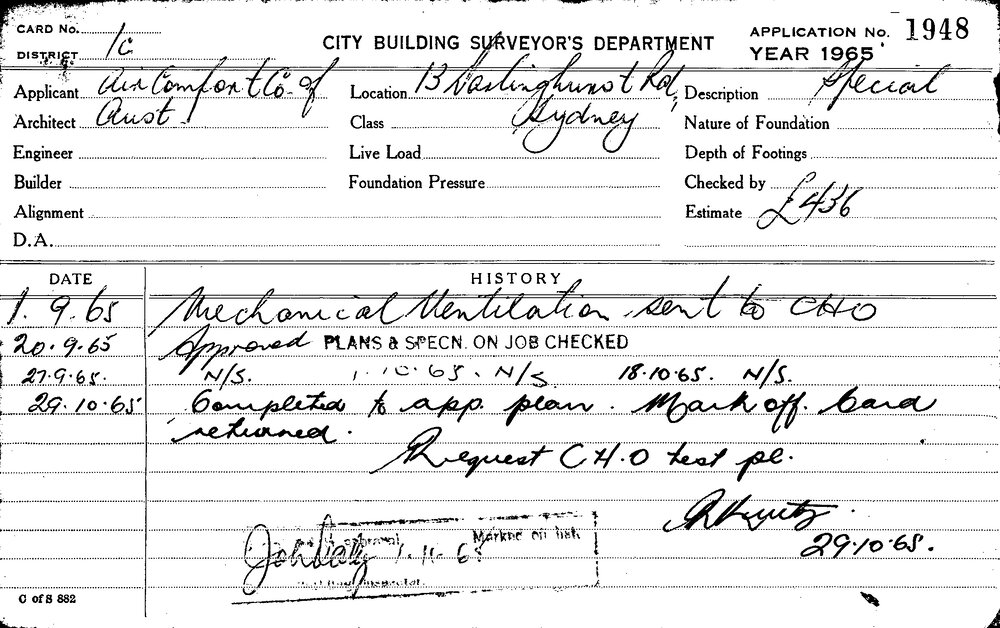 CARD No.
DISTRICT 1c
CITY BUILDING SURVEYOR'S DEPARTMENT
APPLICATION No. 1948
YEAR 1965
Applicant Air Comfort Co. of
Location 13 Darlinghurst Rd,
Description Special
Architect Aust.
Class Sydney
Nature of Foundation
Engineer
Live Load
Depth of Footings
Builder
Foundation Pressure
Checked by
Alignment
Estimate £436
D.A.
DATE HISTORY
1. 9. 65 Mechanical Ventilation sent to CHO
20.9.65 Approved PLANS & SPECN. ON JOB CHECKED
27.9.65. N/S. 1.10.65. N/S 18.10.65. N/S.
29.10.65 Completed to app. plan. Mark off. Card
returned.
Request C H.O test pl.
29.10.65.
approval Marked on
1.11.65
C of S 882